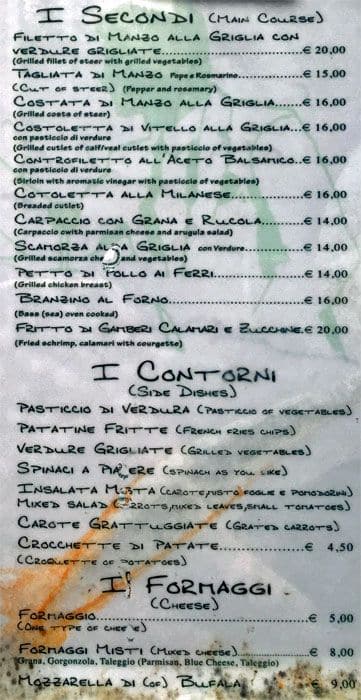 I Secondi (Main Course)
Filetto di Manzo alla Griglia con
verdure grigliate...........................€ 20,00
(Grilled fillet of steer with grilled vegetables)
Tagliata di Manzo Pepe e Rosmarino............€ 15,00
(Cut of steer) (Pepper and rosemary)
Costata di Manzo alla Griglia........€ 16,00
(Grilled costa of steer)
Costoletta di Vitello alla Griglia...€ 16,00
con pasticcio di verdure
(Grilled cutlet of calf/veal cutlet with pasticcio of vegetables)
Controfiletto all'Aceto Balsamico..€ 16,00
con pasticcio di verdure
(Sirloin with aromatic vinegar with pasticcio of vegetables)
Cotoletta alla Milanese..............€ 16,00
(Breaded cutlet)
Carpaccio con Grana e Rucola.........€ 14,00
(Carpaccio cwith parmisan cheese and arugula salad)
Scamorza alla Griglia con Verdure....€ 14,00
(Grilled scamorza and vegetables)
Petto di Pollo ai Ferri..............€ 14,00
(Grilled chicken breast)
Branzino al Forno....................€ 16,00
(Bass (sea) oven cooked)
Fritto di Gamberi Calamari e Zucchine.€ 20,00
(Fried schrimp, calamari with courgette)
I Contorni
(Side Dishes)
Pasticcio di Verdura (Pasticcio of vegetables)
Patatine Fritte (French fries chips)
Verdure Grigliate (Grilled vegetables)
Spinaci a Piacere (spinach as you like)
Insalata Mista (carote, misto foglie e pomodorini)
Mixed salad (carrots, mixed leaves, small tomatoes)
Carote Grattuggiate (Grated carrots)
Crocchette di Patate..................€ 4,50
(Croquette of potatoes)
I Formaggi
(Cheese)
Formaggio.............................€ 5,00
(One type of cheese)
Formaggi Misti (Mixed cheese).........€ 8,00
Grana, Gorgonzola, Taleggio (Parmisan, Blue Cheese, Taleggio)
Mozzarella di (of) Bufala.............€ 9,00